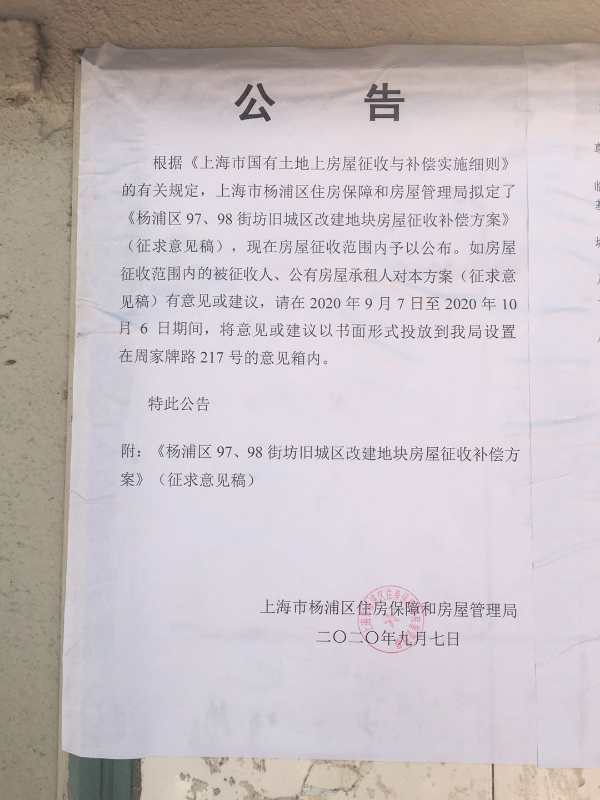 公 告
根据《上海市国有土地上房屋征收与补偿实施细则》
的有关规定，上海市杨浦区住房保障和房屋管理局拟定了
《杨浦区 97、98 街坊旧城区改建地块房屋征收补偿方案》
（征求意见稿），现在房屋征收范围内予以公布。如房屋
征收范围内的被征收人、公有房屋承租人对本方案（征求意
见稿）有意见或建议，请在 2020 年 9 月 7 日至 2020 年 10
月 6 日期间，将意见或建议以书面形式投放到我局设置
在周家牌路 217 号的意见箱内。
特此公告
附：《杨浦区 97、98 街坊旧城区改建地块房屋征收补偿方
案》（征求意见稿）
上海市杨浦区住房保障和房屋管理局
二〇二〇年九月七日